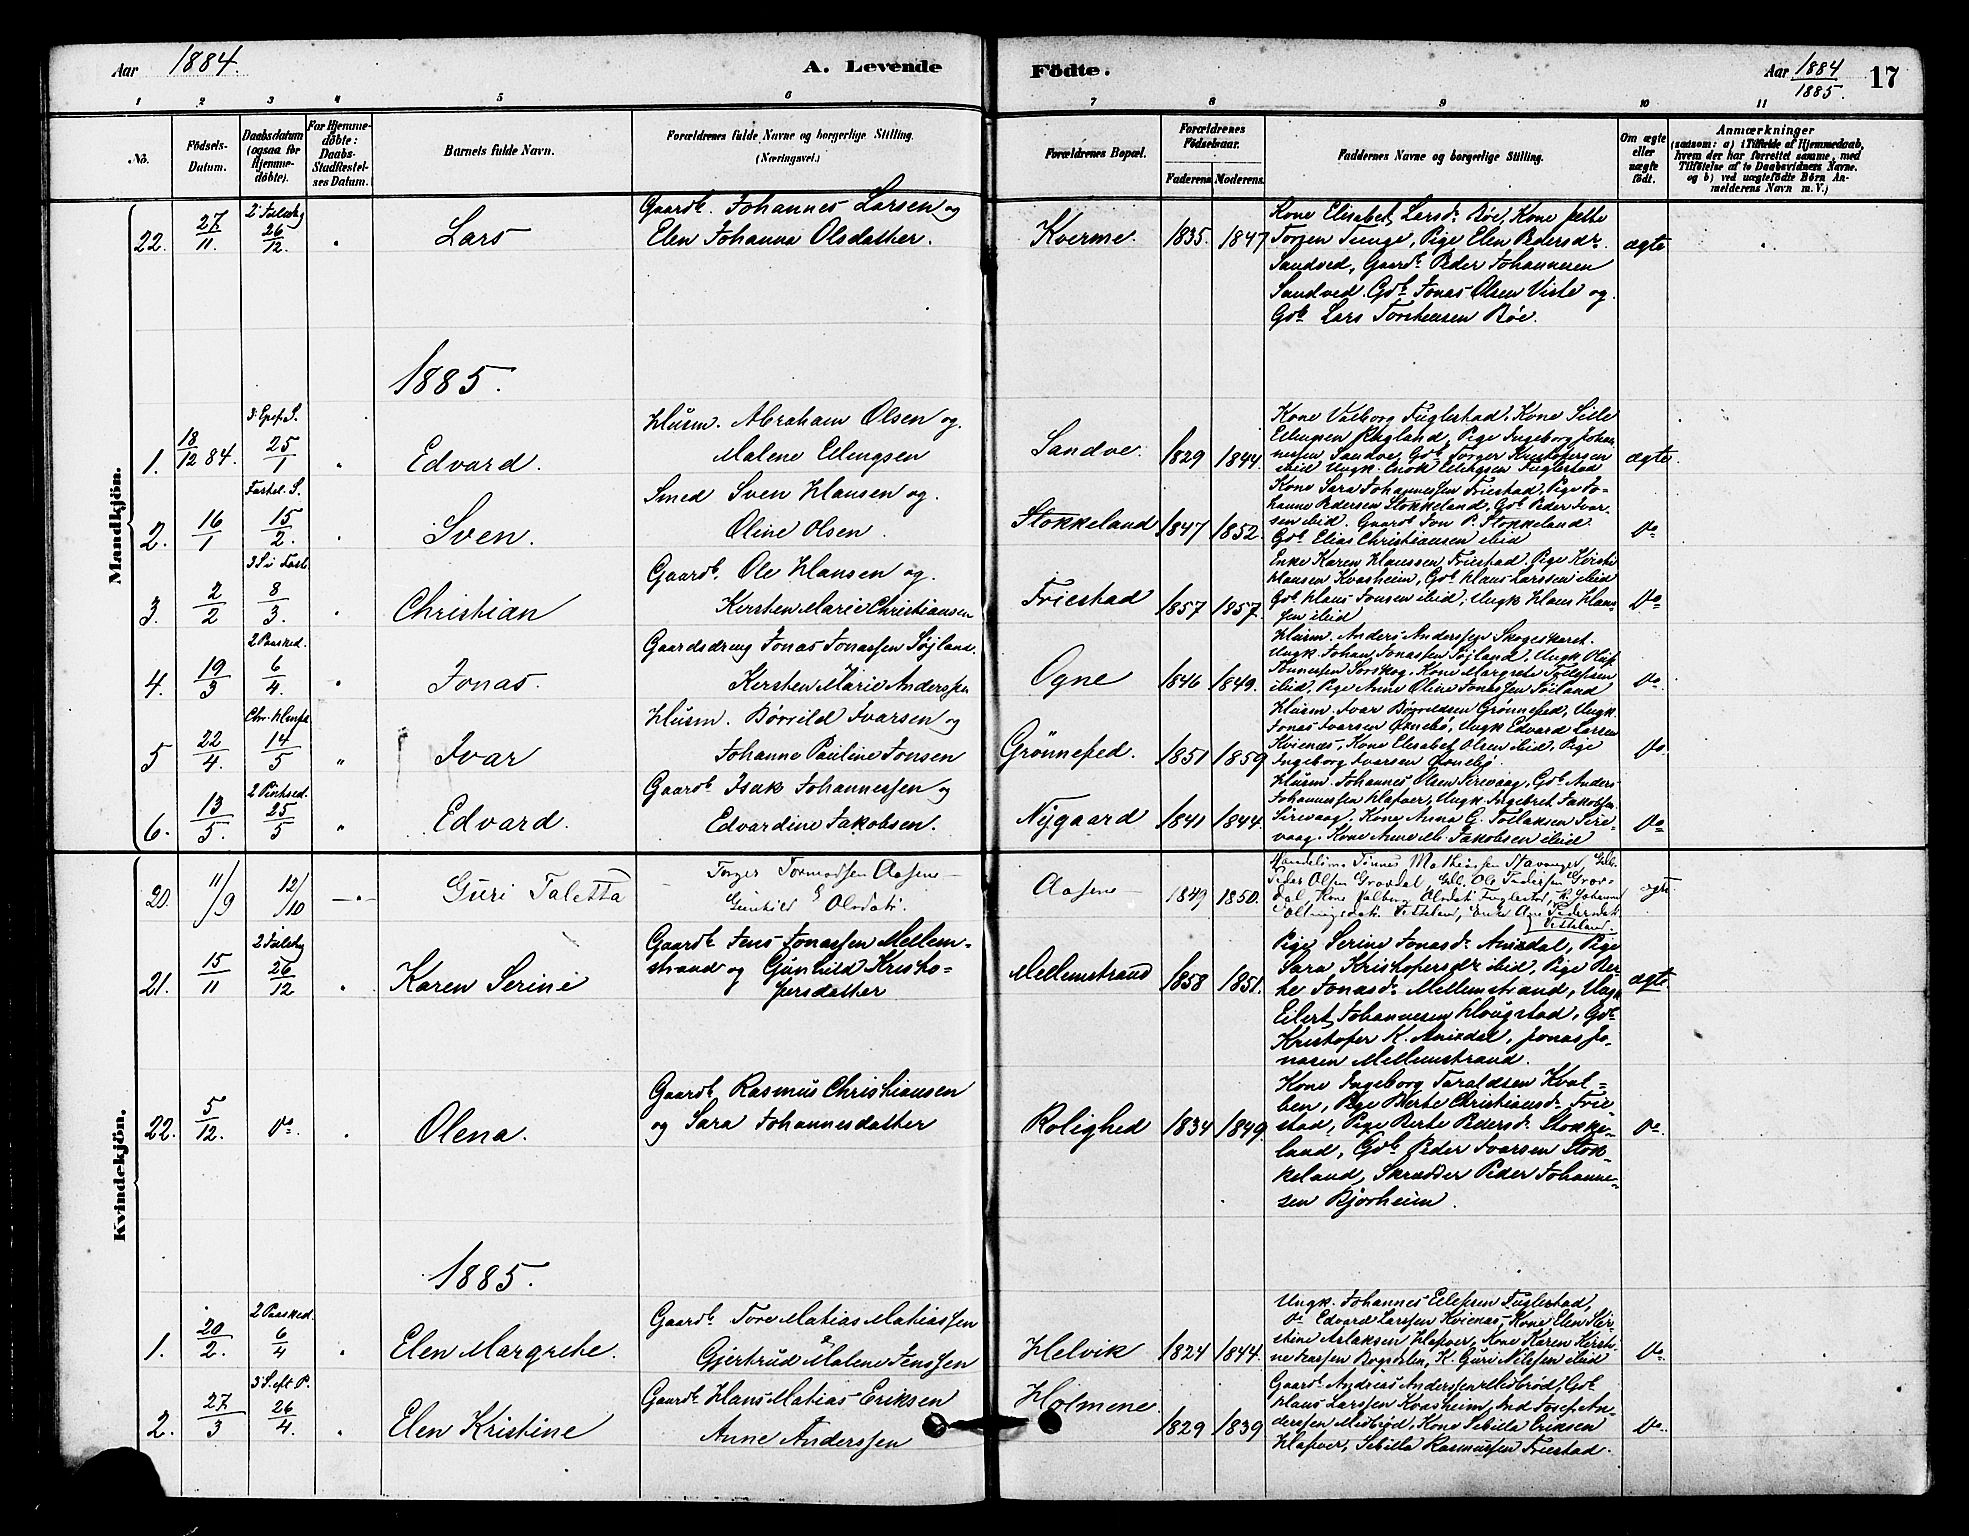 Aar 1884.
A. Levende
Födte.
Aar 1884/1885.
17
1 2 3 4 5 6 7 8 9 10 11
No.
Födsels-Datum.
Daabsdatum (ogsaa for Hjemmedöbte).
For Hjemmedöbte: Daabs-Stadfæstelses Datum.
Barnets fulde Navn.
Forældrenes fulde Navne og borgerlige Stilling.
(Næringsvei.)
Forældrenes Bopæl.
Forældrenes Födselsaar.
Faderens Moderens
Faddernes Navne og borgerlige Stilling.
Om ægte eller uægte födt.
Anmærkninger
(saasom: a) i Tilfælde af Hjemmedaab, hvem der har forrettet samme, med Tilföielse af to Daabsvidners Navne. og b) ved uægtefödte Börn Anmelderens Navn m. V.)
Mandkjön.
22. 27/11. 2 Juledag 26/12. " Lars
Gaardb. Johannes Larsen og
Elen Johanna Olsdather.
Kverme. 1835. 1847
Kone Elisabet Larsdr. Bøe, Kone Jette
Torgen Tunge, Pige Elen Pedersdr.
Sandved, Gaardb. Peder Johannesen
Sandved. Gdb. Jonas Olsen Viste og
Gdb. Lars Torstensen Böe.
ægte
1885.
1. 18/12 84. 3. Epef. S. 25/1 " Edvard.
Husm. Abraham Olsen og.
Malene Ellingsen
Sandve. 1829 1844.
Kone Valborg Fuglestad. Kone Sille
Ellingsen Rægland, Pige Ingeborg Johan-
nessen Sandve, Gdb. Torger Kristofersen
ibid Ungk. Enok Ellingsen Fuglestad
ægte
2. 16/1 Fastel. S. 15/2. " Sven.
Smed Sven Hansen og.
Oline Olsen.
Stokkeland 1847 1852.
Kone Sara Johannessen Friestad, Pige Jo-
hanne Pedersen Stokkeland, Gdb. Peder Ivar-
sen ibid. Gaardb. Jon P. Stokkeland.
Gdb. Elias Christiansen ibid
Do
3. 2/2 3 S. i Fast. 8/3. " Christian
Gaardb. Ole Hansen og.
Kersten Marie Christiansen
Friestad 1857 1857.
Enke Karen Hanssen, Friestad. Pige Kirstie
Hansen Kvasheim, Gdb. Hans Larssen ibid
Gdb. Hans Jonsen ibid, Ungk. Hans Han-
sen ibid
Do
4. 19/3 2 Paasked. 6/4. " Jonas.
Gaardsdreng Jonas Jonassen Söjland.
Kersten Marie Anderssen
Ogne 1846 1849.
Husm. Anders Anderssen Skogeskaret.
Ungk. Johan Jonassen Söjland, Ungk.
Tönnessen Torskog, Kone Margrete Tollefsen
ibid, Pige Anne Oline Jonassen Söiland
Do
5 22/4. Chr. Himf. 14/5 " Ivar
Husm. Börrild Ivarsen og
Johanne Pauline Jonsen
Grönnefed. 1851 1859
Husm. Ivar Börrildsen Grönnefed, Ungk.
Jonas Ivarsen Öxnebö, Ungk Edvard Larsen
Kvienæs, Kone Elisabet Olsen ibid. Pige
Ingeborg Ivarsen Öxnebö.
Do.
6. 13/5. 2 Pintsed. 25/5 " Edvard.
Gaardb. Isak Johannessen og
Edvardine Jakobsen.
Nygaard 1841 1844.
Husm. Johannes Olsen Sirevaag, Gdb. Anders
Johannessen Hafver, Ungk. Ingebret Jakobsen
Sirevaag. Kone Anna G. Tollaksen Sire-
vaag. Kone Anne M. Jakobsen ibid
Do
Kvindekjön.
20. 11/9 12/10 Guri Taletta
Torger Tormodsen Aasene
Gunhild Olsdatr.
Aasene 1849 1850.
Handelsm. Tönnes Mathiassen Stavanger, Gdb.
Peder Olsen Grovdal Gdb. Ole Pedersen Grov-
dal, Kone Valborg Olsdatr. Fuglestad,
Pedersdatr.
ægte
21. 15/11 2 Juledag 26/12 " Karen Serine
Gaardb. Jens Jonassen Mellem-
strand og Gunhild Kristo-
fersdatter
Mellemstrand 1858 1851.
Pige Serine Jonasdr. Anisdal, Pige
Sara Kristofersdr ibid, Pige Ber-
te Jonasdr. Mellemstrand, Ungk
Eilert Johannesen Hougstad, Gdb.
Kristofer K. Anisdal, Jonas Jo-
nasen Mellemstrand.
ægte
22. 5/12. Do. " Olena.
Gaardb. Rasmus Christiansen
og Sara Johannesdatter
Rolighed 1834 1849.
Kone Ingeborg Taraldsen Kval-
ben, Pige Berte Christiansdr. Frie-
stad, Pige Berte Pedersdr. Stokke-
land, Gdb. Peder Ivarsen Stok-
keland, Skrædder Peder Johanne-
sen Bjorheim.
Do.
1885.
1. 20/2. 2 Paasked. 6/4 " Elen Margrethe.
Gaardb. Tore Matias Matiassen
& Gjertrud Malene Jenssen
Helvik 1824 1844.
Ungk. Johannes Eilefsen Fuglestad,
Do Edvard Larssen Kvienæs, Kone Elen Kir-
stine Aslaksen Hafver, Kone Karen Kirsti-
ne Bogsdalen, K. Guri Nilssen ibid
Do
2. 27/3 3 S. eft P. 26/4. " Elen Kristine
Gaardb. Hans Matias Eriksen
Anne Anderssen
Holmene. 1829 1839
Gaardb. Andreas Anderssen Midbröd, Gdb.
Hans Larssen Kvasheim, Ind. Josef An-
derssen Midbröd, Kone Sebilla Eriksen
Hafver, Sebilla Rasmussen Friestad.
Do